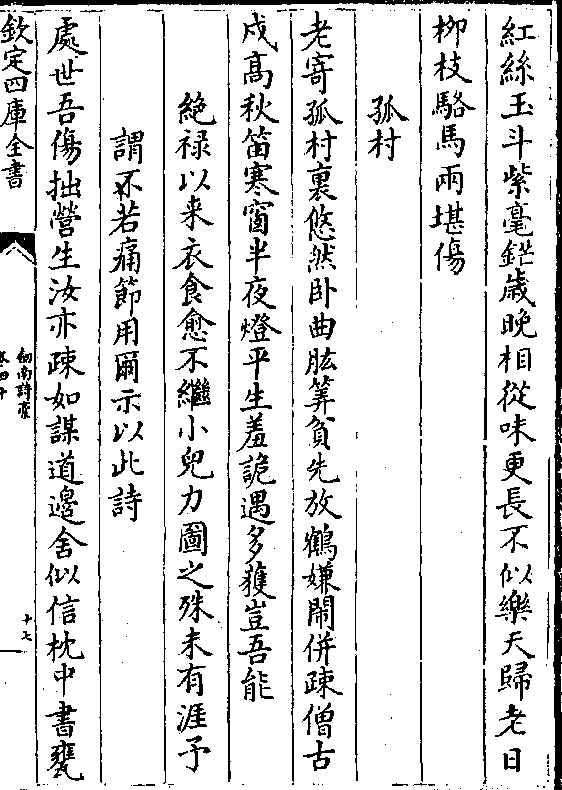 紅絲玉斗紫毫鋩歲晚相從味更長不似樂天歸老日
柳枝駱馬兩堪傷
孤村
老寄孤村裏悠然卧曲肱筭貧先放鶴嫌閙併疎僧古
戍髙秋笛寒窗半夜燈平生羞詭遇多獲豈吾能
絶禄以来衣食愈不繼小兒力圖之殊未有涯予
謂不若痛節用爾示以此詩
處世吾傷拙營生汝亦疎如謀道邊舍似信枕中書甕
欽定四庫全書
劍南詩稾
卷四十
十七